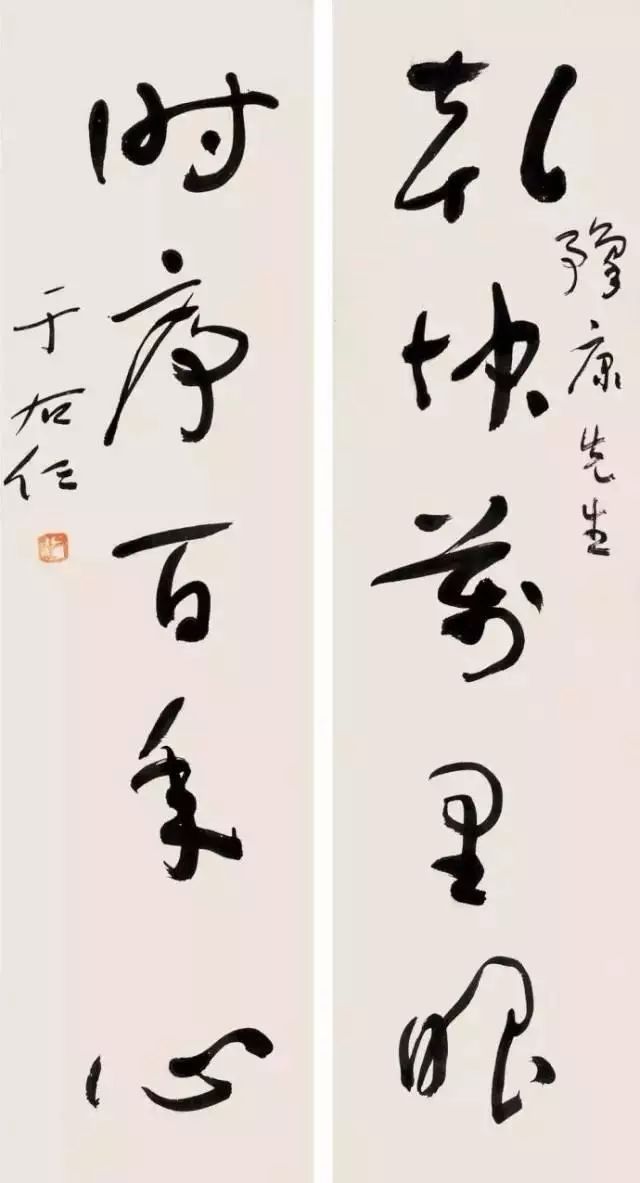 豫康先生
乾坤萬里眼
時序百年心
于右任